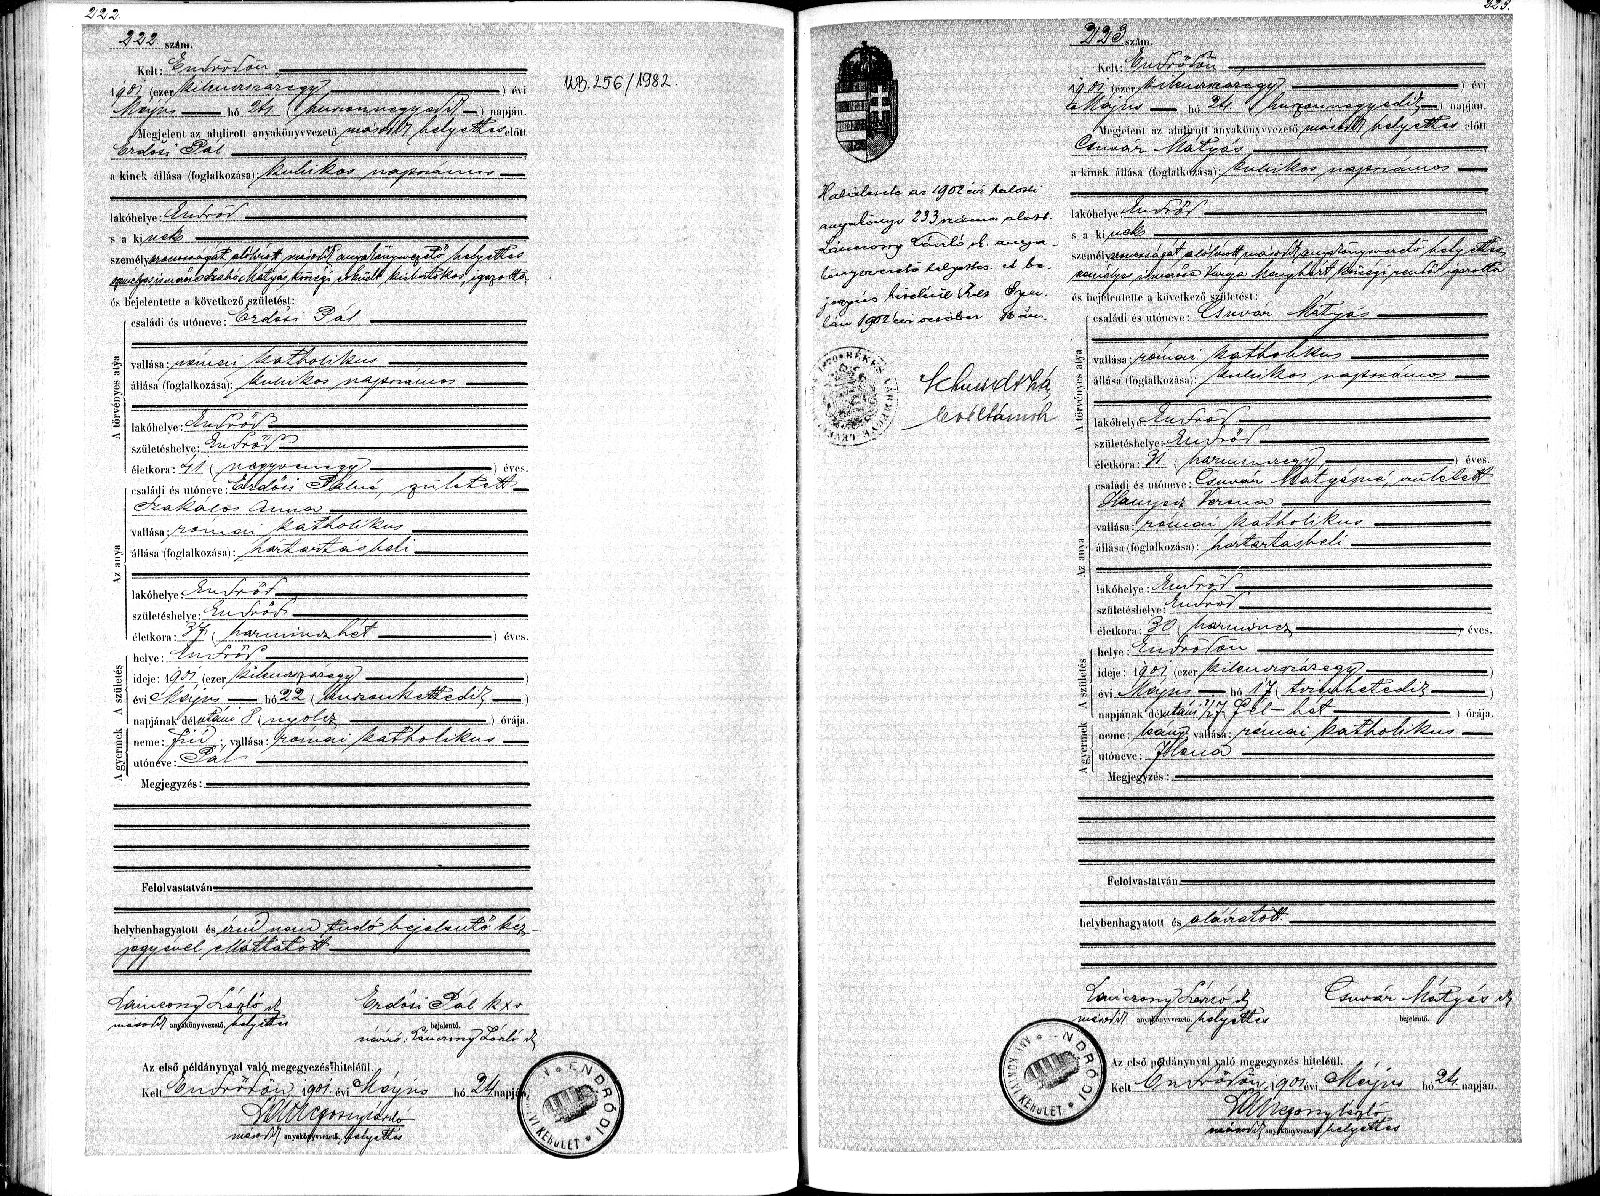 222.
222 szám.
Kelt: Endrődön
1901 (ezer kilenczszázegy) évi
Május hó 24 (huszonnegyedik) napján.
Megjelent az alulirott anyakönyvvezető második helyettes előtt
Erdősi Pál
a kinek állása (foglalkozása): kubikos napszámos
lakóhelye: Endrőd
s a kinek
személyazonosságát alólirott második anyakönyvvezető helyettes
Szabó Mátyás községi igazolta,
és bejelentette a következő születést:
A törvényes atya
családi és utóneve: Erdősi Pál
vallása: római katholikus
állása (foglalkozása): kubikos napszámos
lakóhelye: Endrőd
születéshelye: Endrőd
életkora: 41 (negyvenegy) éves.
Az anya
családi és utóneve: Erdősi Pálné, született
Szakálos Anna
vallása: római katholikus
állása (foglalkozása): háztartásbeli
lakóhelye: Endrőd
születéshelye: Endrőd
életkora: 37 (harminczhét) éves.
A születés
helye: Endrőd
ideje: 1901 (ezer kilenczszázegy)
évi Május hó 22 (huszonkettedik)
napjának délutáni 8 (nyolcz) órája.
A gyermek
neme: fiú; vallása: római katholikus
utóneve: Pál
Megjegyzés:
Felolvastatván
helybenhagyatott és írni nem tudó bejelentő kéz-
jegyével elláttatott
Lániczony László sk
második anyakönyvvezető, helyettes
Erdősi Pál kxv
bejelentő.
névíró: Lániczony László sk
Az első példánynyal való megegyezés hiteléül.
Kelt Endrődön 1901. évi Május hó 24 napján.
Lániczony László
második anyakönyvvezető, helyettes
ENDRŐDI
KERÜLET
UB. 256/1982
223.
223 szám.
Kelt: Endrődön
1901 (ezer kilenczszázegy) évi
Május hó 24 (huszonnegyedik) napján.
Megjelent az alulirott anyakönyvvezető második helyettes előtt
Csuvár Mátyás
a kinek állása (foglalkozása): kubikos napszámos
lakóhelye: Endrőd
s a kinek
személyazonosságát alólirott második anyakönyvvezető helyettes
Varga községi rendőr igazolta
és bejelentette a következő születést:
A törvényes atya
családi és utóneve: Csuvár Mátyás
vallása: római katholikus
állása (foglalkozása): kubikos napszámos
lakóhelye: Endrőd
születéshelye: Endrőd
életkora: 31 (harminczegy) éves.
Az anya
családi és utóneve: Csuvár Mátyásné, született
Verona
vallása: római katholikus
állása (foglalkozása): háztartásbeli
lakóhelye: Endrőd
születéshelye: Endrőd
életkora: 30 (harmincz) éves.
A születés
helye: Endrődön
ideje: 1901 (ezer kilenczszázegy)
évi Május hó 17 (tizenhetedik)
napjának délutáni 1/27 fél-hét órája.
A gyermek
neme: leány; vallása: római katholikus
utóneve: Ilona
Megjegyzés:
Felolvastatván,
helybenhagyatott és aláíratott
Lániczony László sk
második anyakönyvvezető, helyettes
Csuvár Mátyás sk
bejelentő.
Az első példánynyal való megegyezés hiteléül.
Kelt Endrődön, 1901 évi Május hó 24 napján.
Lániczony László
második anyakönyvvezető helyettes
ENDRŐDI
ANYAKÖNYVI KERÜLET
az 1902 évi halotti
anyakönyv 233 száma alatt.
László anya-
helyettes
1902 évi